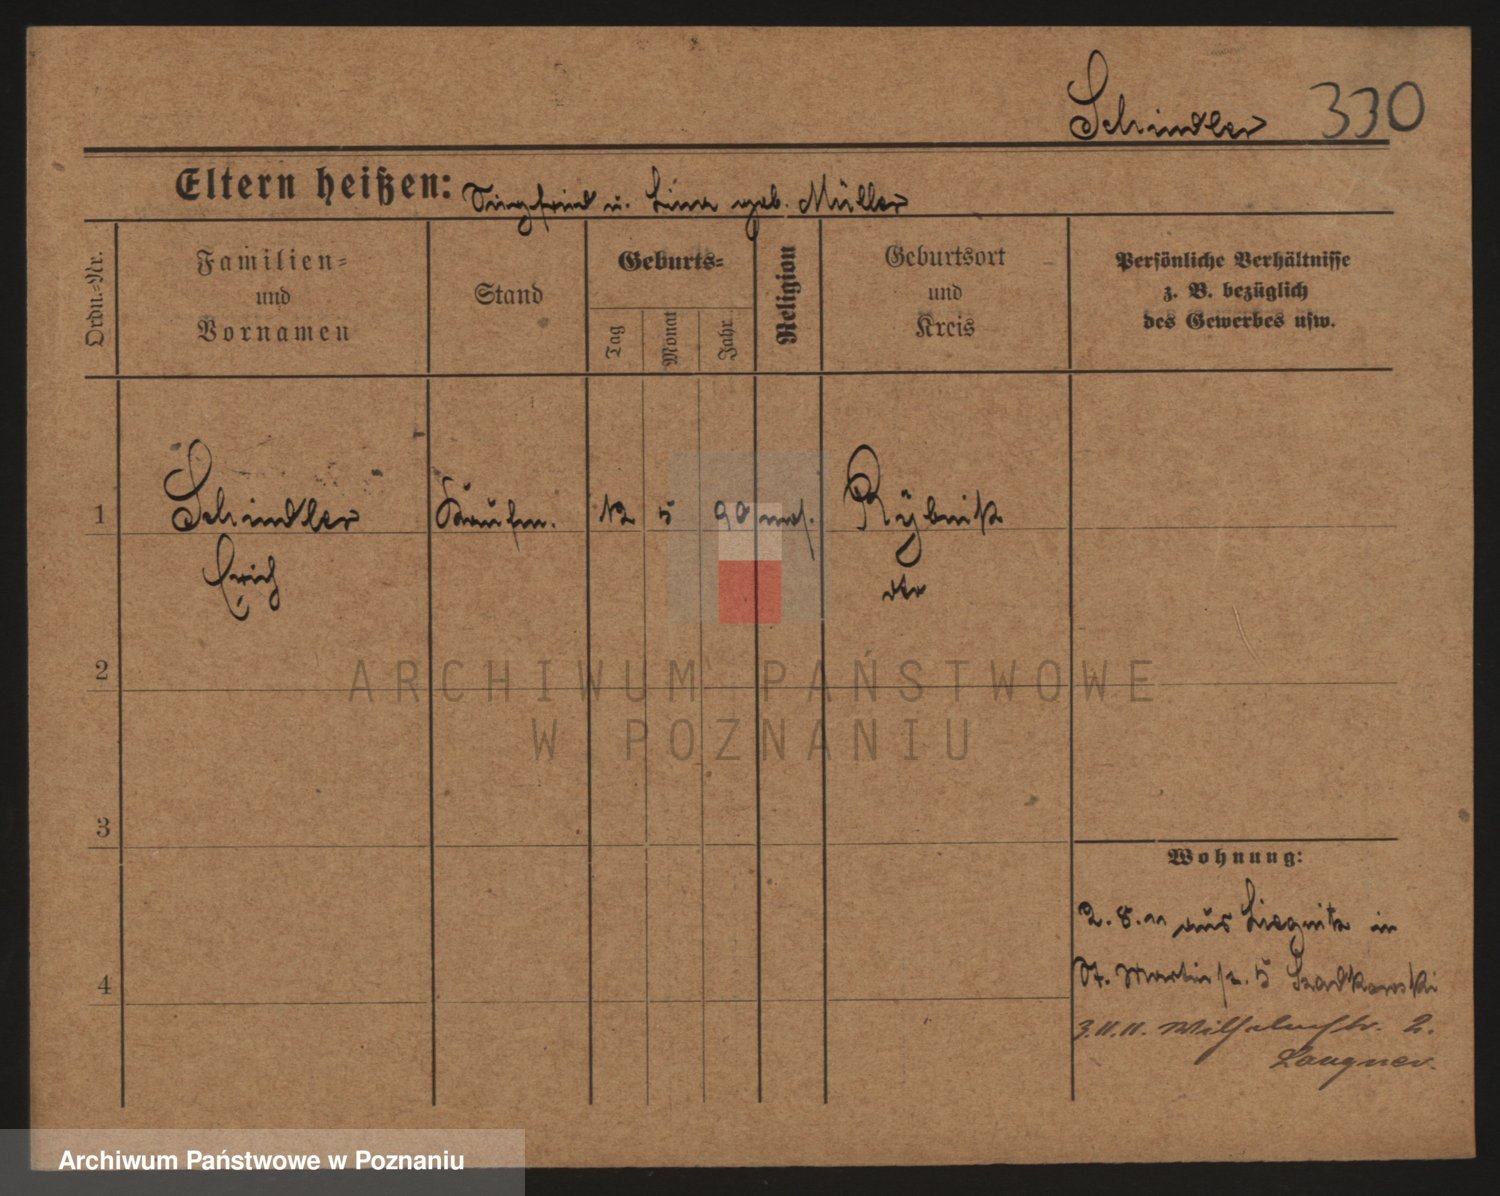 Schindler 330
Eltern heißen: Siegfried u. Lina geb. Müller
Ordn.=Nr.
Familien=
und
Vornamen
Stand
Geburts=
Tag
Monat
Jahr
Religion
Geburtsort
und
Kreis
Persönliche Verhältnisse
z. B. bezüglich
des Gewerbes usw.
1 Schindler Kaufm. 12 5 90 mos. Rybnik
Erich dto
2
3
4
Wohnung:
2. 8. 11 aus Liegnitz in
St. Martinstr. 5 Szadkowski
3.11.11. Wilhelmstr. 2.
Langner.
ARCHIWUM PAŃSTWOWE
W POZNANIU
Archiwum Państwowe w Poznaniu